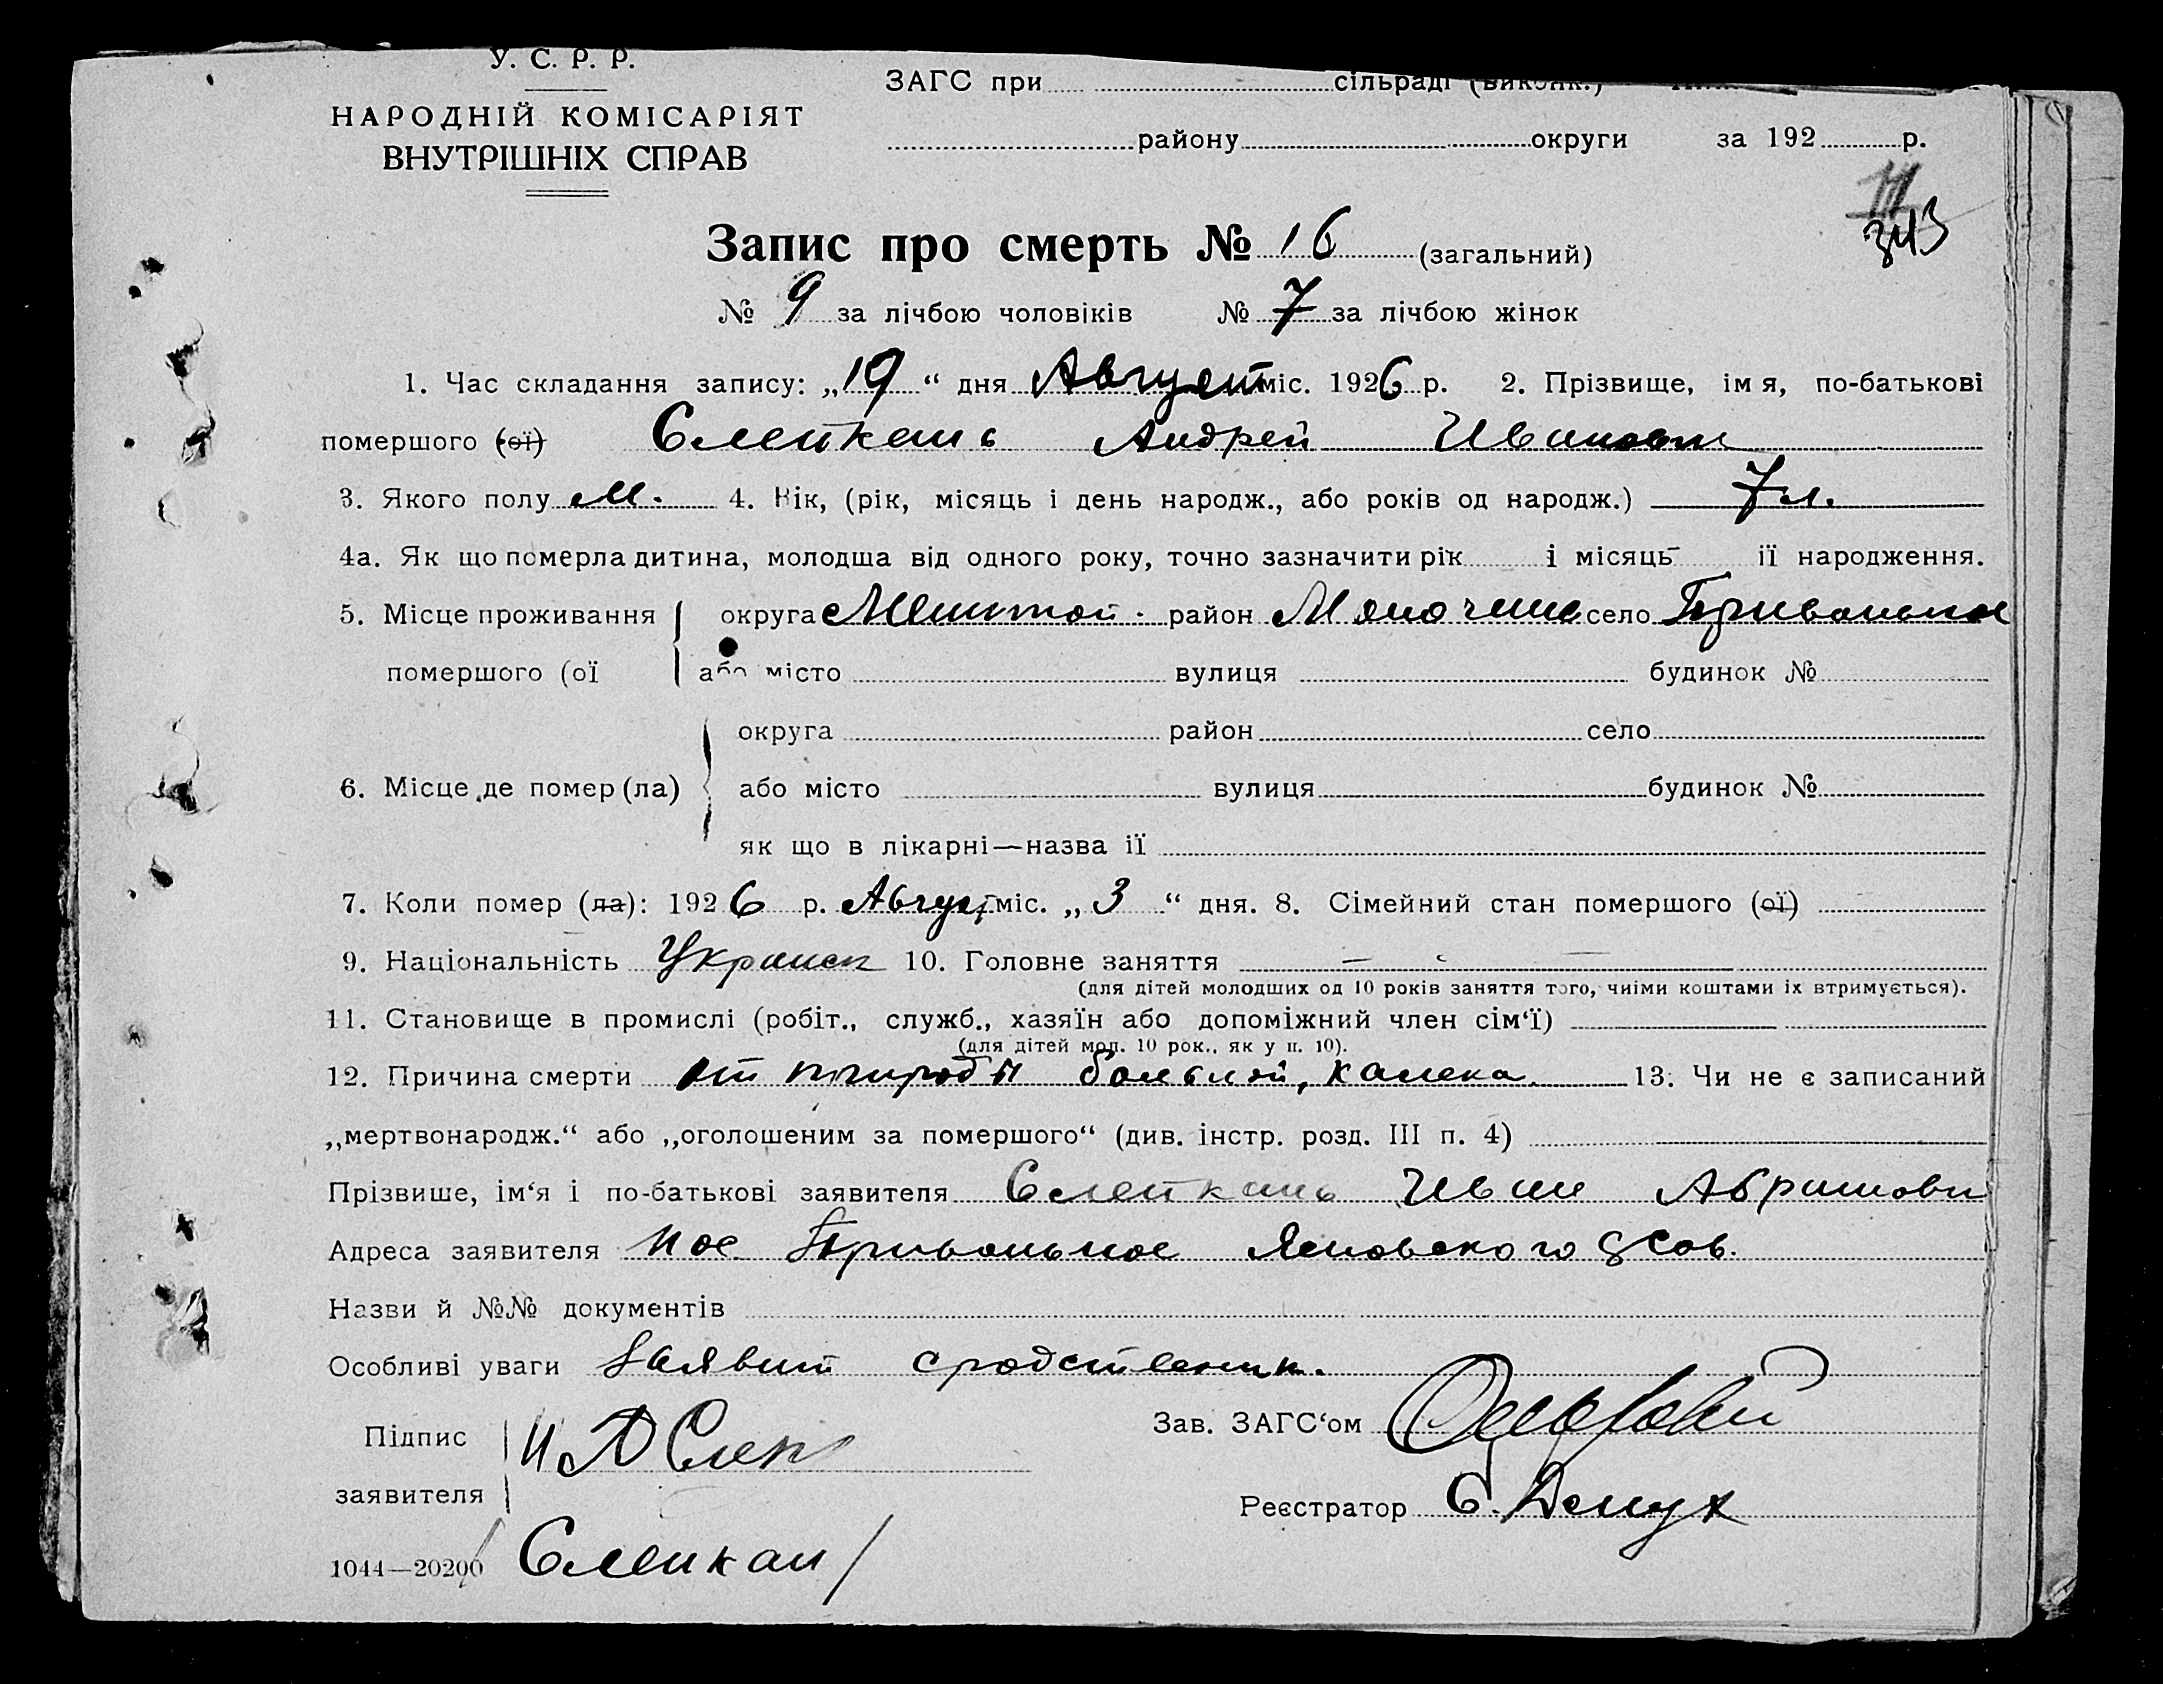 У. С. Р. Р.
НАРОДНІЙ КОМІСАРІЯТ
ВНУТРІШНІХ СПРАВ
ЗАГС при сільраді (виконк.)
району округи за 192 р.
343
Запис про смерть № 16 (загальний)
№ 9 за лічбою чоловіків № 7 за лічбою жінок
1. Час складання запису: „19“ дня Август міс. 1926 р. 2. Прізвище, ім я, по-батькові
помершого (ої) Слепкань Андрей Иванови
3. Якого полу м. 4. Вік, (рік, місяць і день народж., або років од народж.) 7 л.
4а. Як що померла дитина, молодша від одного року, точно зазначити рік і місяць її народження.
5. Місце проживання округа район село Привольное
помершого (ої або місто вулиця будинок №
округа район село
6. Місце де помер (ла) або місто вулиця будинок №
як що в лікарні—назва її
7. Коли помер (ла): 1926 р. Август міс. „3“ дня. 8. Сімейний стан помершого (ої)
9. Національність Украин 10. Головне заняття —
(для дітей молодших од 10 років заняття того, чиїми коштами їх втримується).
11. Становище в промислі (робіт., служб., хазяїн або допоміжний член сім‘ї)
(для дітей мол. 10 рок., як у п. 10).
12. Причина смерти от природы больной, калека. 13. Чи не є записаний
„мертвонародж.“ або „оголошеним за помершого“ (див. інстр. розд. III п. 4)
Прізвише, ім‘я і по-батькові заявителя Слепкань Иван Абрамови
Адреса заявителя пос Привольное Ясиновского
Назви й №№ документів
Особливі уваги Заявит сродственник.
Підпис И А Слеп
заявителя
Зав. ЗАГС‘ом
Реєстратор С.
1044—20200 Слепкан /